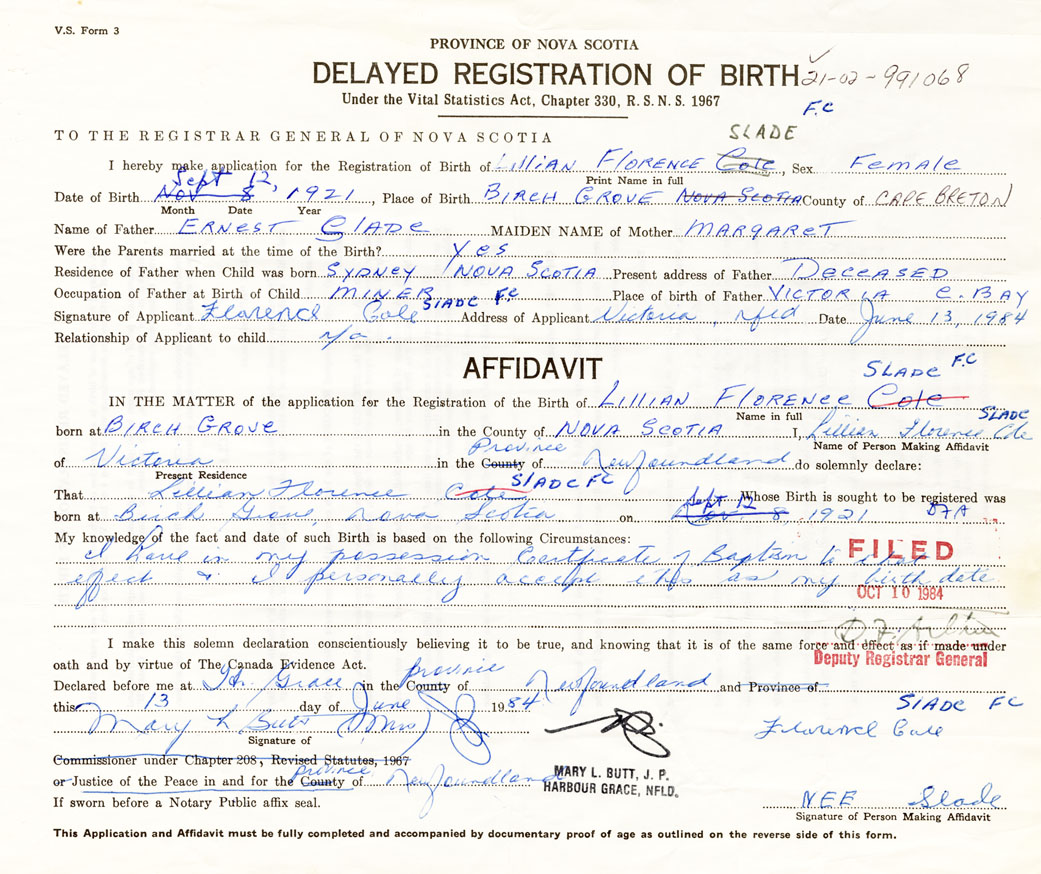 V.S. Form 3
PROVINCE OF NOVA SCOTIA
DELAYED REGISTRATION OF BIRTH 21-02-991068
Under the Vital Statistics Act, Chapter 330, R.S.N.S. 1967 F.C
TO THE REGISTRAR GENERAL OF NOVA SCOTIA SLADE
I hereby make application for the Registration of Birth of LILLIAN FLORENCE Cole, Sex FEMALE
Print Name in full
Sept 12,
Date of Birth Nov 8 1921, Place of Birth BIRCH GROVE NOVA SCOTIA County of CAPE BRETON
Month Date Year
Name of Father ERNEST SLADE MAIDEN NAME of Mother MARGARET
Were the Parents married at the time of the Birth? YES
Residence of Father when Child was born SYDNEY NOVA SCOTIA Present address of Father DECEASED
Occupation of Father at Birth of Child MINER Place of birth of Father VICTORIA C. BAY
SLADE F.C
Signature of Applicant Florence Cole Address of Applicant Victoria, nfld Date June 13, 1984
Relationship of Applicant to child n/a.
AFFIDAVIT
SLADE F.C
IN THE MATTER of the application for the Registration of the Birth of LILLIAN FLORENCE Cole
Name in full
SLADE
born at BIRCH GROVE in the County of NOVA SCOTIA I, Lillian Florence Cole
Name of Person Making Affidavit
Province
of Victoria in the County of Newfoundland do solemnly declare:
Present Residence
SLADE FC
That Lillian Florence Cole Whose Birth is sought to be registered was
Sept 12
born at Birch Grove, Nova Scotia on Nov 8, 1921 DFA
My knowledge of the fact and date of such Birth is based on the following Circumstances:
I have in my possession Certificate of Baptism to that
effect & I personally accept this as my birth date
FILED
OCT 10 1984
I make this solemn declaration conscientiously believing it to be true, and knowing that it is of the same force and effect as if made under
Deputy Registrar General
oath and by virtue of The Canada Evidence Act.
province
Declared before me at Hr. Grace in the County of Newfoundland and Province of
this 13 day of June 1984
SLADE FC
Mary L Butt (Mrs) Florence Cole
Signature of
Commissioner under Chapter 208, Revised Statutes, 1967
province
or Justice of the Peace in and for the County of Newfoundland
MARY L. BUTT, J. P.
HARBOUR GRACE, NFLD.
If sworn before a Notary Public affix seal.
NEE Slade
Signature of Person Making Affidavit
This Application and Affidavit must be fully completed and accompanied by documentary proof of age as outlined on the reverse side of this form.